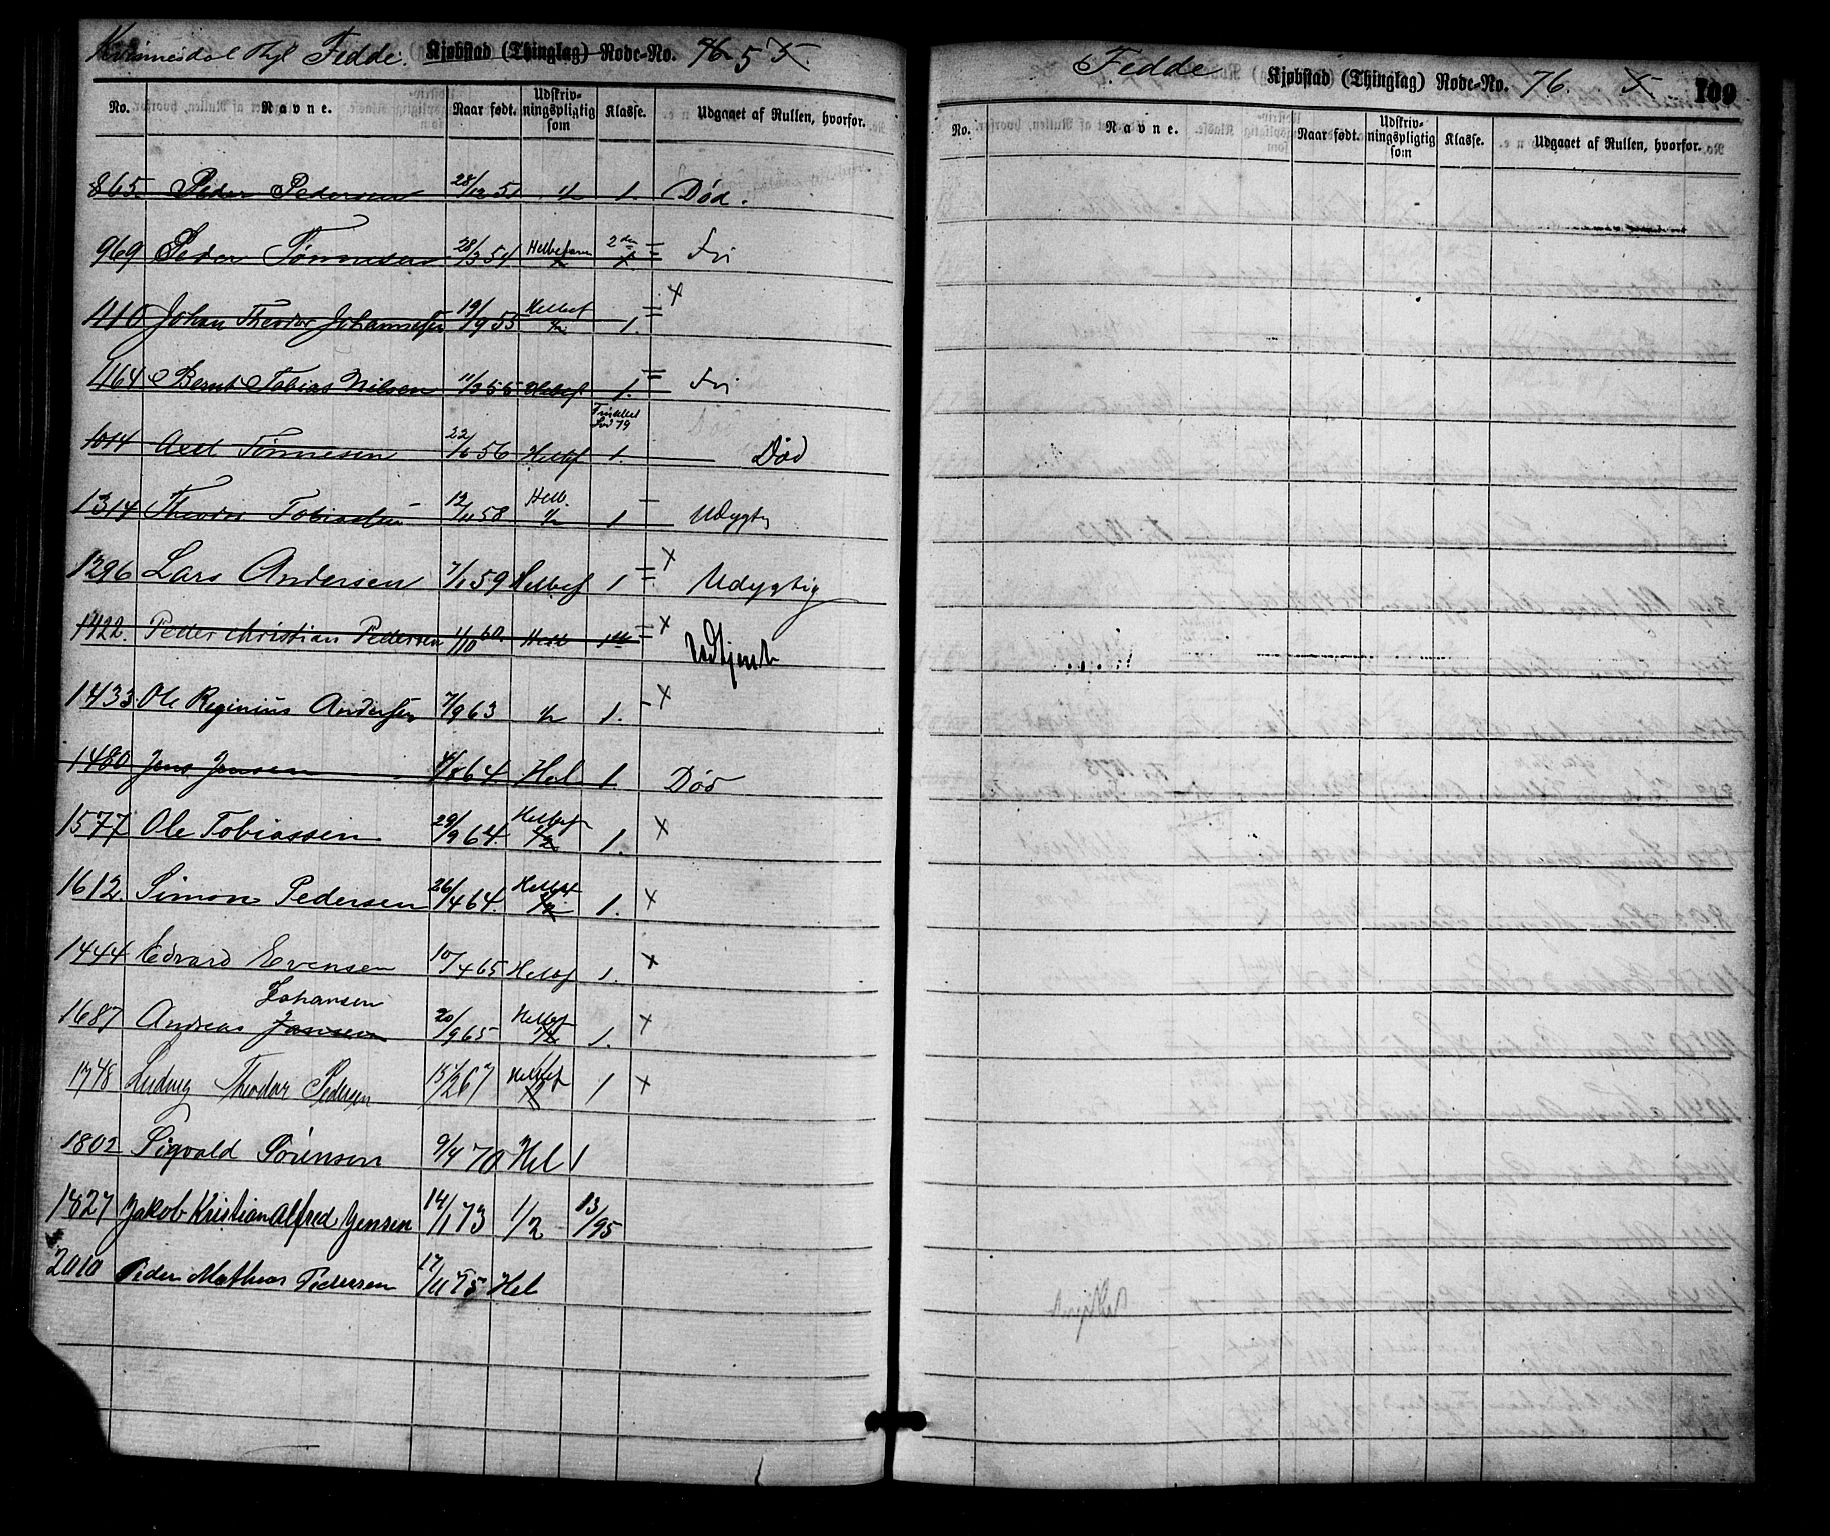 Fedde. Kjøbstad (Thinglag) Rode-No. 76 5 X.
No. Navne. Naar født. Udskriv-ningspligtig som Klasse. Udgaaet af Rullen, hvorfor.
865. Peder Pedersen 28/12 51 1/2 1. Død.
969 Peder Tønnesen 28/3 54 Helbefaren 2den Fri
410 Johan Theodor Johannessen 19/9 55 Helbef 1/2 1. X
464 Bernt Tobias Nilsen 11/3 56 Helbef 1. Fri
1014 Axel Tønnesen 22/6 56 Helbef 1. Død
1314 Theodor Tobiassen 12/11 58 Helb. 1/2 1 Udygtig
1296 Lars Andersen 7/1 59 Helbef 1 X Udygtig
1422. Peder Christian Pedersen 1/10 60. Helb 1ste X Udtjent
1433. Ole Reginius Andersen 7/9 63 1/2 1. X
1480 Jens Jensen 4/8 64 Hel 1 Død
1577 Ole Tobiassen 29/9 64. Helbef 1/2 1. X
1612. Simon Pedersen 26/4 64. Helbef 1/2 1. X
1444 Edvard Evensen 10/4 65 Helbf 1. X
Johansen
1687 Andreas Jansen 20/9 65 Helbef 1/2 1. X
1748 Ludvig Theodor Pedersen 15/2 67 Helbef 1/2 1 X
1802 Sigvald Sørensen 9/4 70 Hel 1
1827 Jakob Kristian Alfred Jensen 14/1 73 1/2 13/95
2010 Peder Mathias Pedersen 17/11 75 Hel
Fedde Kjøbstad (Thinglag) Rode-No. 76. X 109
No. Navne. Naar født. Udskriv-ningspligtig som Klasse. Udgaaet af Rullen, hvorfor.